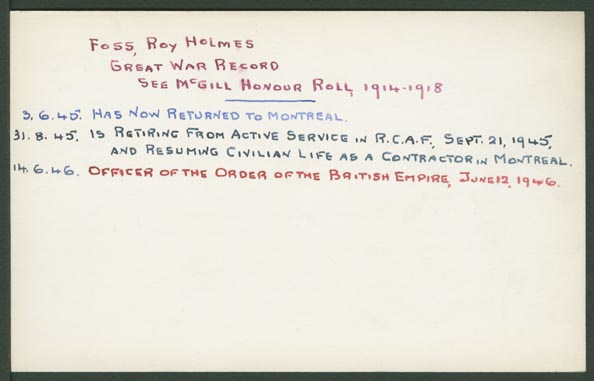 Foss, Roy Holmes
Great War Record
See McGill Honour Roll, 1914-1918
3.6.45. Has now returned to Montreal.
31.8.45. Is retiring from active service in R.C.A.F., Sept. 21, 1945,
and resuming civilian life as a contractor in Montreal.
14.6.46. Officer of the Order of the British Empire, June 12, 1946.